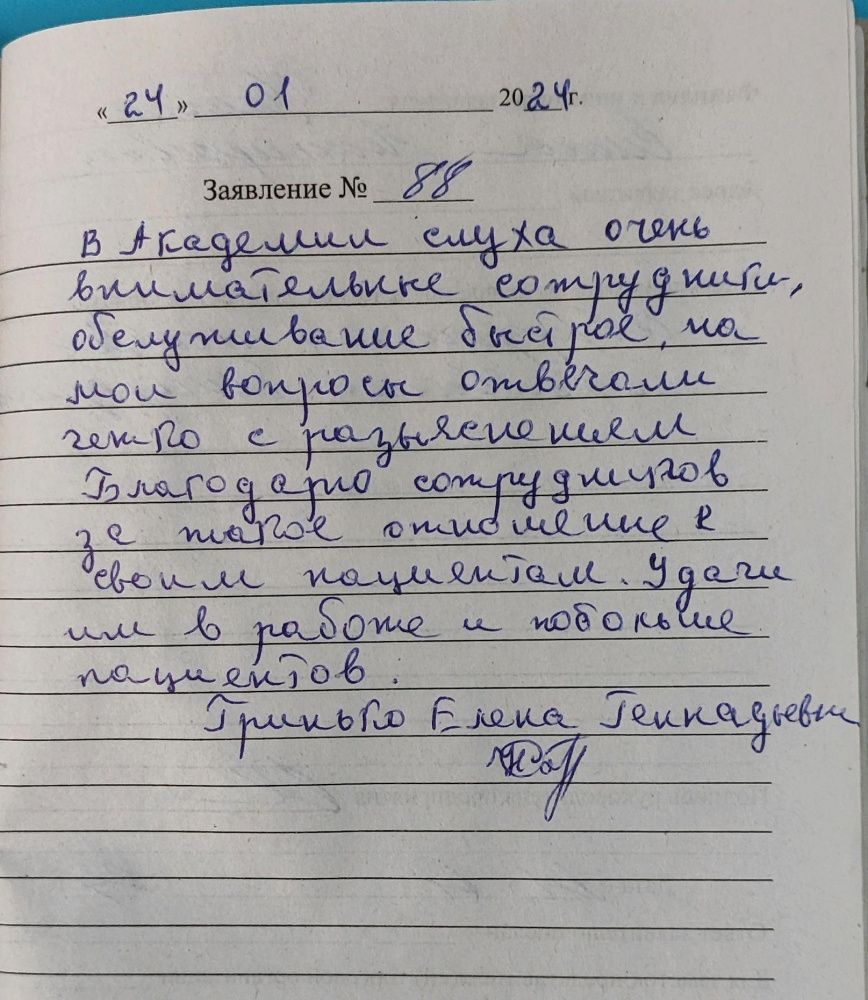 « 24 » 01 2024г.
Заявление № 88
В Академии слуха очень
внимательные сотрудники,
обслуживание быстрое, на
мои вопросы отвечали
четко с разъяснением
Благодарю сотрудников
за такое отношение к
своим пациентам. Удачи
им в работе и побольше
пациентов.
Гринько Елена Геннадьевна